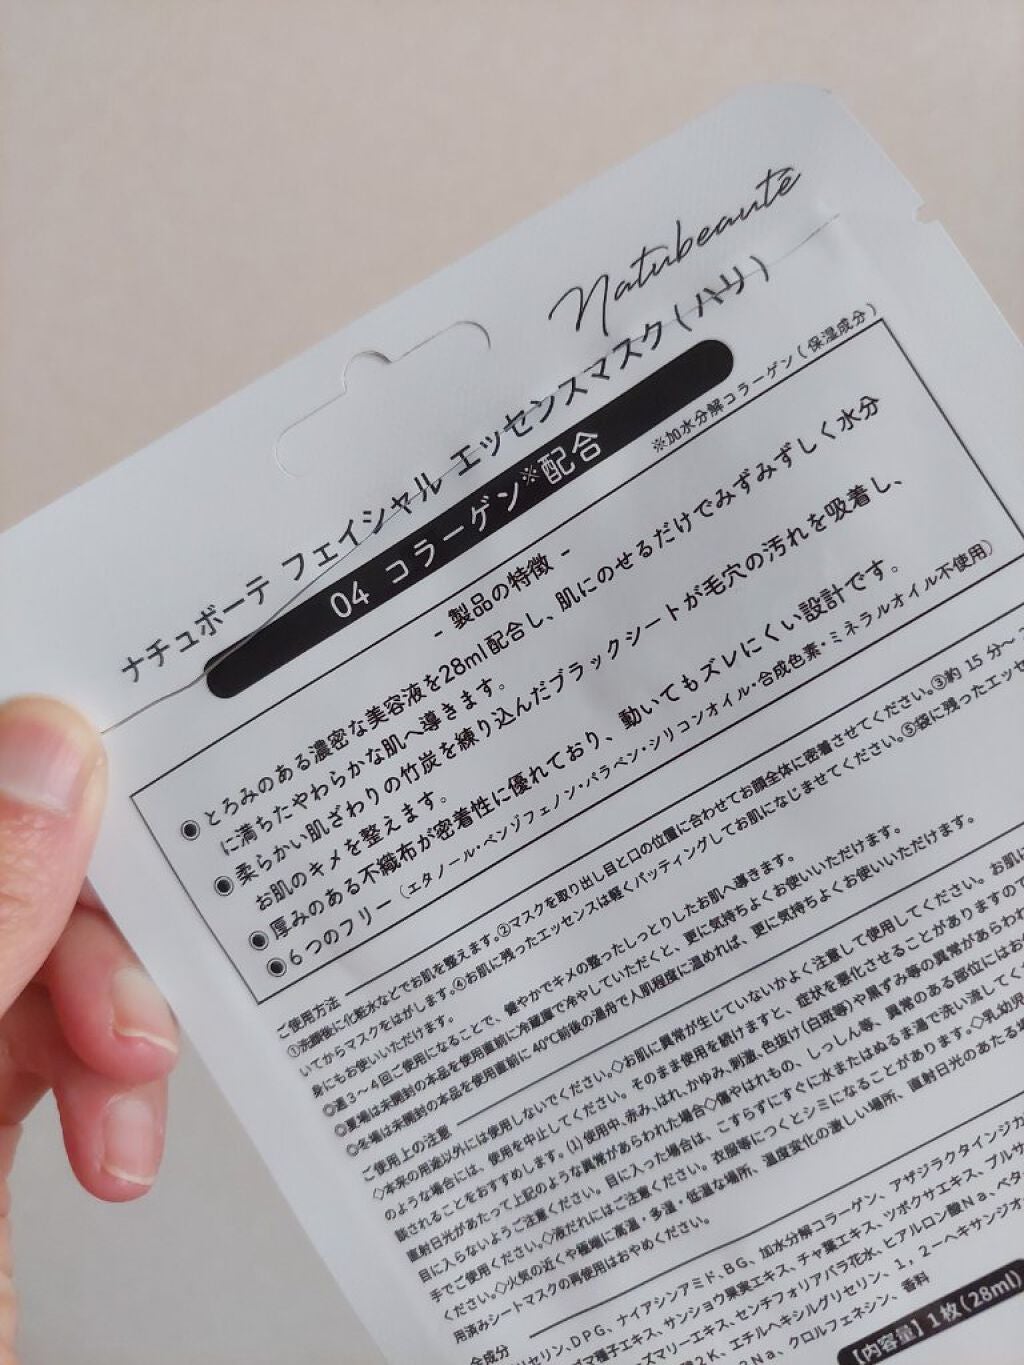 Natubeauté
ナチュボーテ フェイシャル エッセンスマスク(ハリ)
04 コラーゲン※配合
※加水分解コラーゲン(保湿成分)
- 製品の特徴 -
◉とろみのある濃密な美容液を28ml配合し、肌にのせるだけでみずみずしく水分
に満ちたやわらかな肌へ導きます。
◉柔らかい肌ざわりの竹炭を練り込んだブラックシートが毛穴の汚れを吸着し、
お肌のキメを整えます。
◉厚みのある不織布が密着性に優れており、動いてもズレにくい設計です。
◉6つのフリー(エタノール・ベンゾフェノン・パラベン・シリコンオイル・合成色素・ミネラルオイル不使用)
ご使用方法
①洗顔後に化粧水などでお肌を整えます。②マスクを取り出し目と口の位置に合わせてお顔全体に密着させてください。③約 15 分〜
いてからマスクをはがします。④お肌に残ったエッセンスは軽くパッティングしてお肌になじませてください。⑤袋に残ったエッセ
身にもお使いいただけます。
◎週3〜4回ご使用になることで、健やかでキメの整ったしっとりしたお肌へ導きます。
◎夏場は未開封の本品を使用直前に冷蔵庫で冷やしていただくと、更に気持ちよくお使いいただけます。
◎冬場は未開封の本品を使用直前に 40℃前後の湯舟で人肌程度に温めれば、更に気持ちよくお使いいただけます。
ご使用上の注意
◇本来の用途以外には使用しないでください。◇お肌に異常が生じていないかよく注意して使用してください。お肌に
のような場合には、使用を中止してください。そのまま使用を続けますと、症状を悪化させることがありますので
談されることをおすすめします。(1)使用中、赤み、はれ、かゆみ、刺激、色抜け(白斑等)や黒ずみ等の異常があらわれ
直射日光があたって上記のような異常があらわれた場合◇傷やはれもの、しっしん等、異常のある部位にはお
目に入らないようご注意ください。目に入った場合は、こすらずにすぐに水またはぬるま湯で洗い流してく
手でご使用ください。◇液だれにはご注意ください。衣服等につくとシミになることがあります。◇乳幼児
ください。◇火気の近くや極端に高温・多湿・低温な場所、温度変化の激しい場所、直射日光のあたる場
用済みシートマスクの再使用はおやめください。
合成分
リセリン、DPG、ナイアシンアミド、BG、加水分解コラーゲン、アザジラクタインジカ
マ種子エキス、サンショウ果実エキス、チャ葉エキス、ツボクサエキス、プルサ
ズマリーエキス、センチフォリアバラ花水、ヒアルロン酸Na、ベタ
2K、エチルヘキシルグリセリン、1,2-ヘキサンジオ
2Na、クロルフェネシン、香料
【内容量】1枚(28ml)